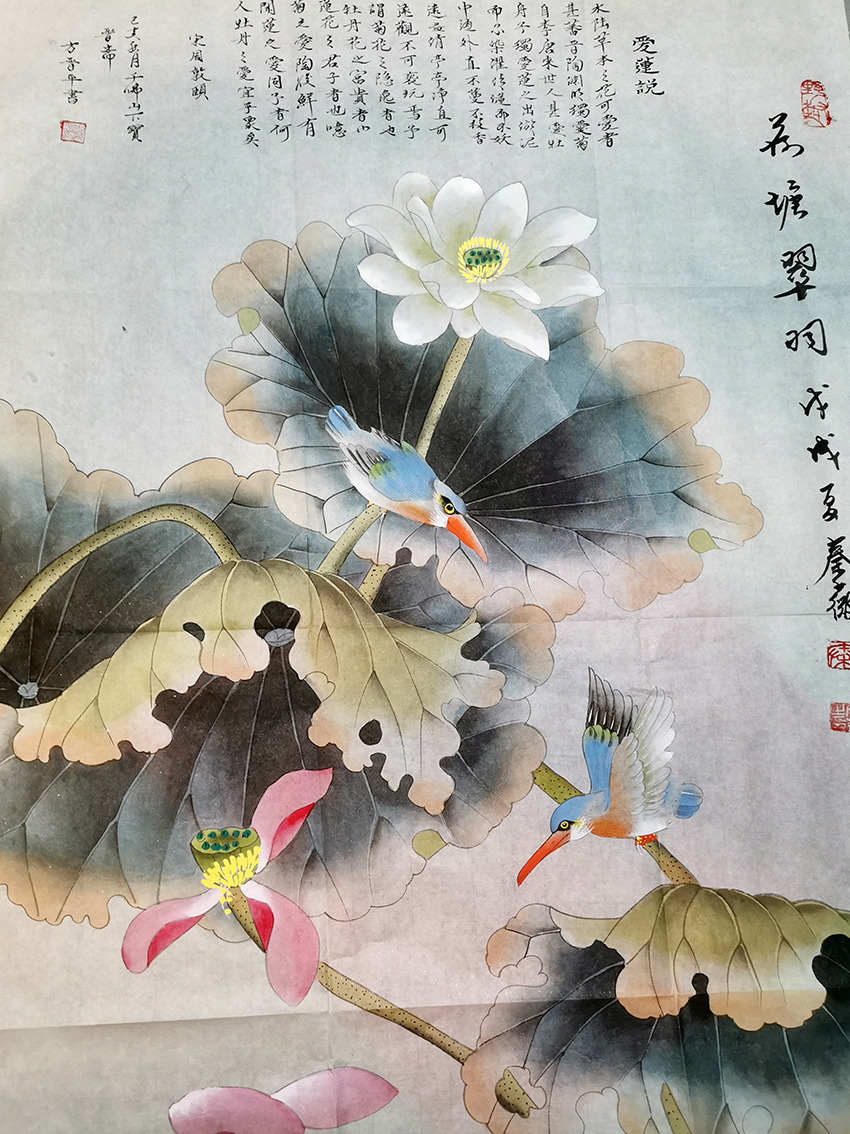 荷塘翠羽 戊戌夏
愛蓮說
水陸草木之花可愛者
甚蕃晉陶淵明獨愛菊
自李唐來世人甚愛牡
丹予獨愛蓮之出淤泥
而不染濯清漣而不妖
中通外直不蔓不枝香
遠益清亭亭淨直可
遠觀不可褻玩焉予
謂菊花之隱逸者也
牡丹花之富貴者也
蓮花之君子者也噫
菊之愛陶後鮮有
聞蓮之愛同予者何
人牡丹之愛宜乎眾矣
宋周敦頤
己亥五月千佛山下寶
晉齋
方晉平書